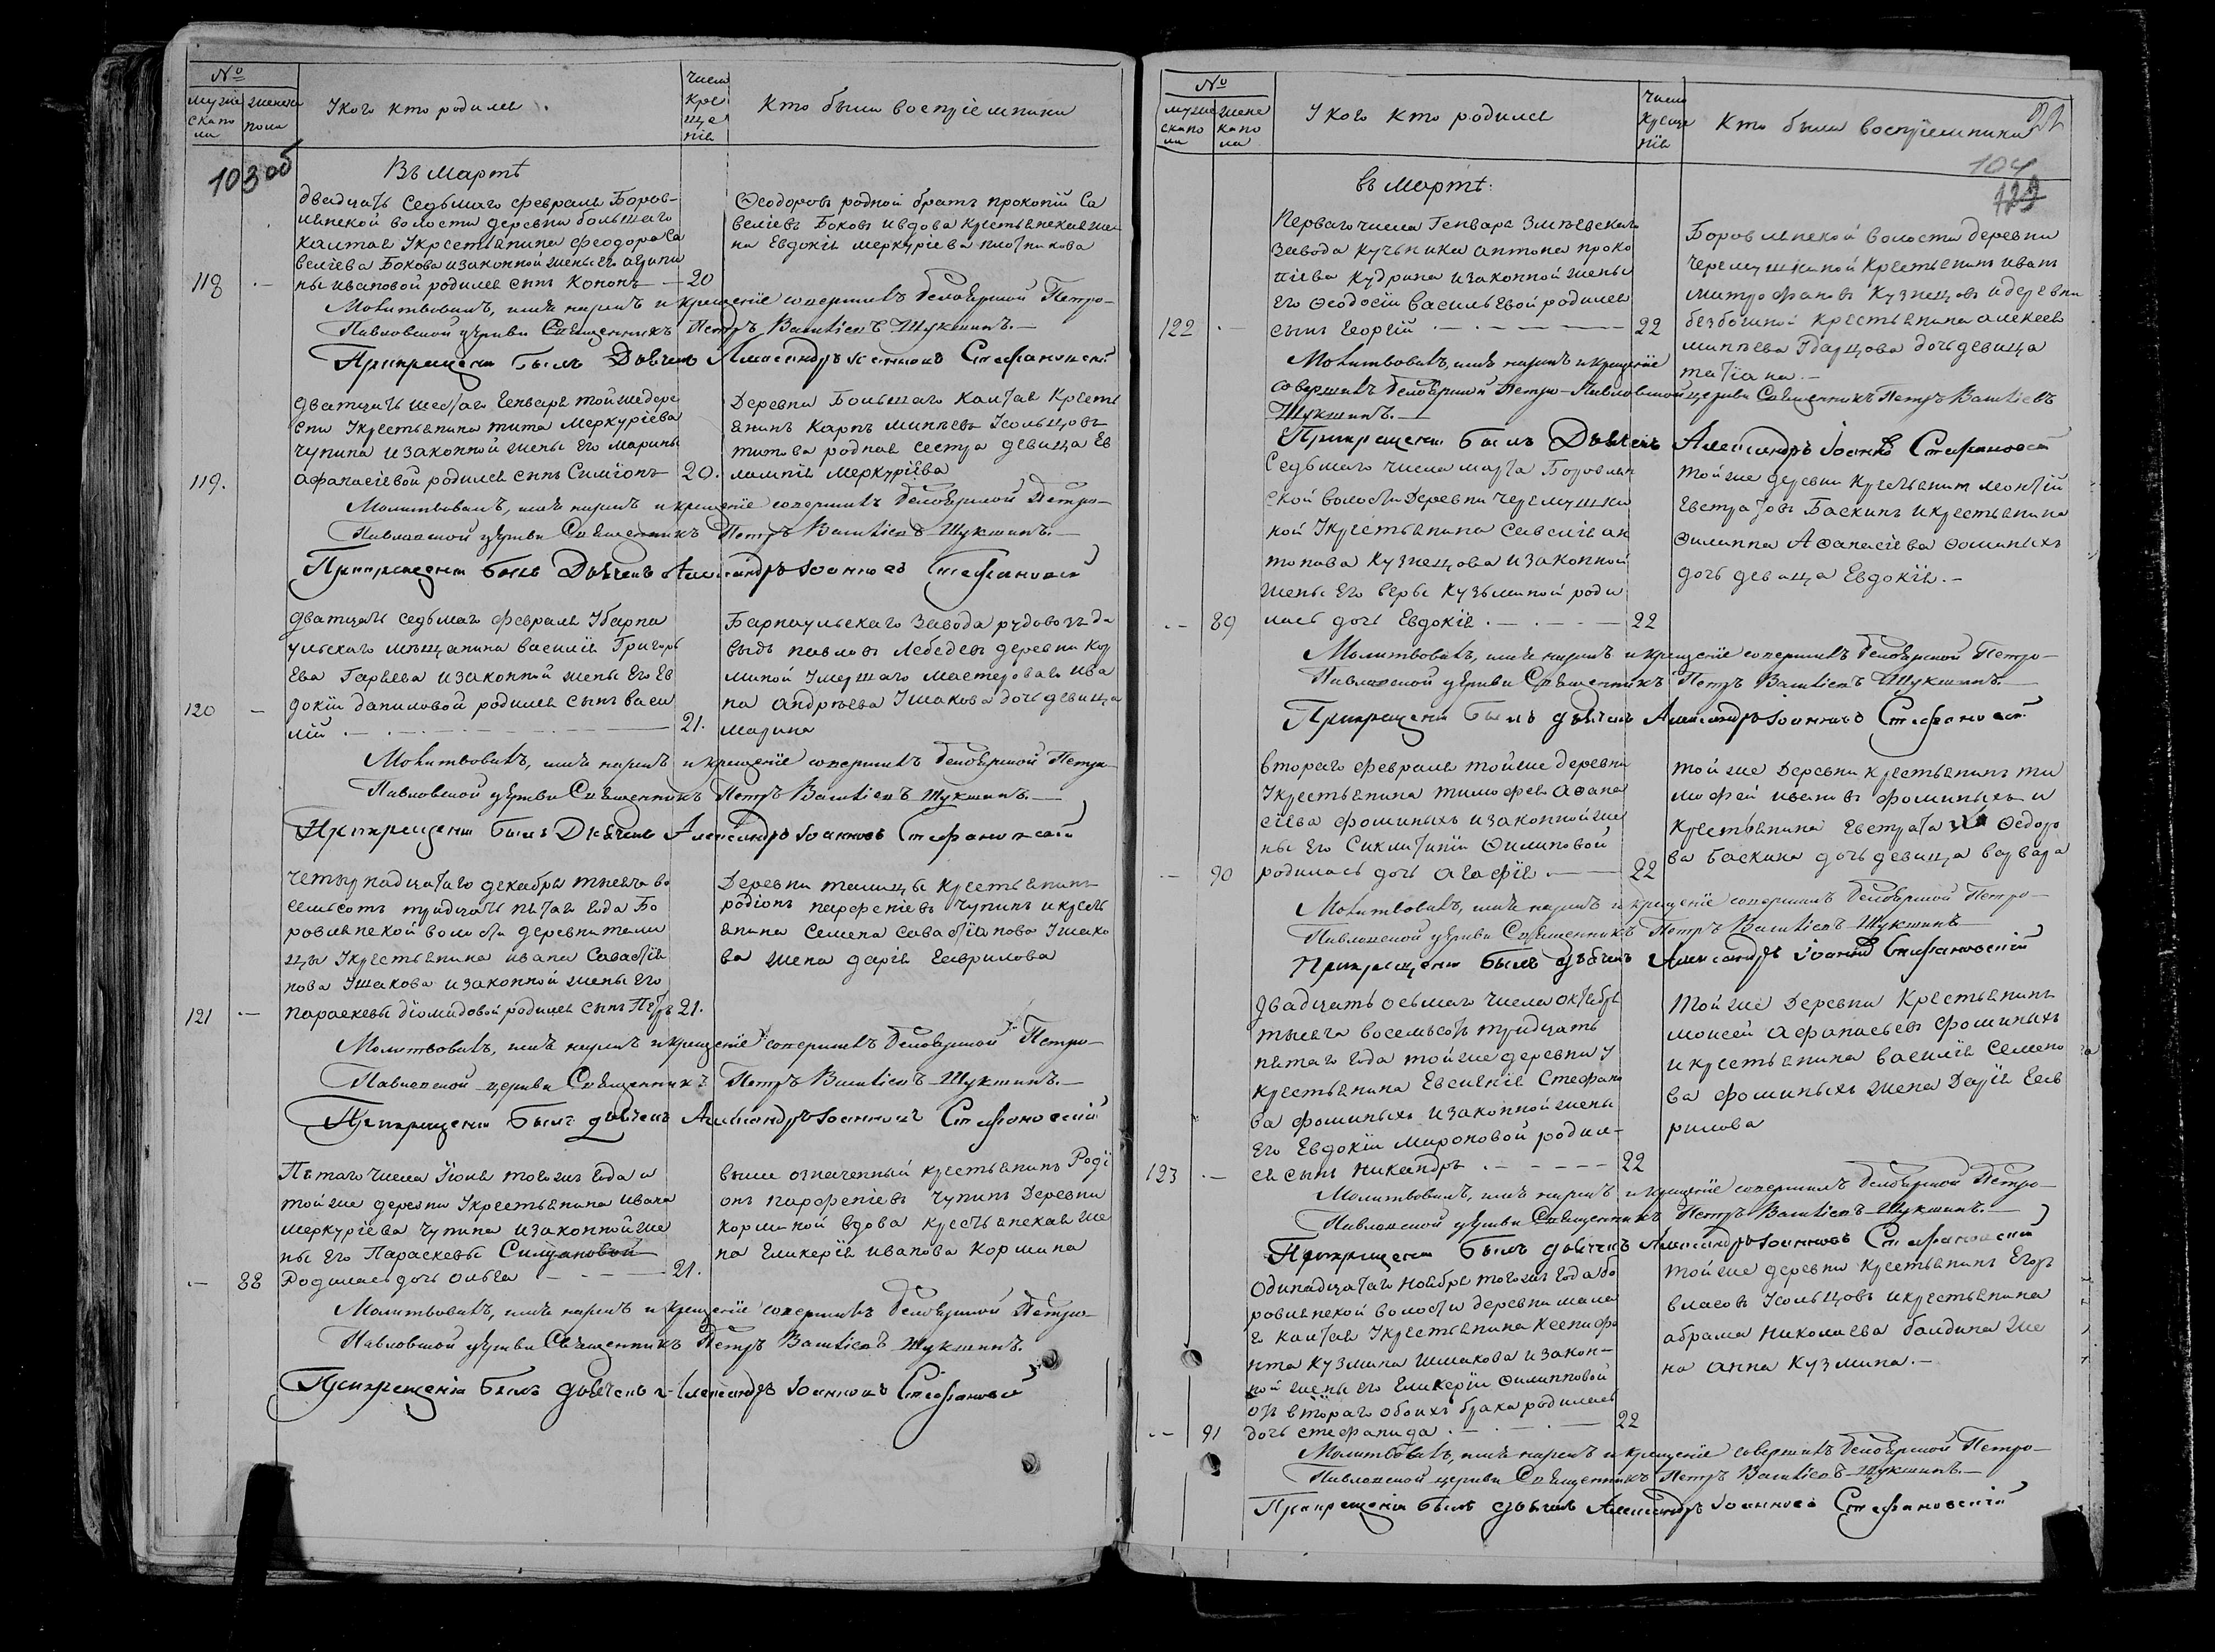 №
мужескаполи
женскаполи
У кого кто родился
число крещенія
Кто были воспріемники
103 об
Въ мартѣ
двадцать седьмаго февраля Боров-
лянской волости деревни большаго
калтая Укрестьянина феодора Са
веліева Бокова изаконной жены его агрипи
118 ны ивановой родился сынъ Кононъ — 20
Ѳеодоровъ родной братъ прокопій Са
веліевъ Боковъ ивдова крестьянская же
на Евдокія меркуріева плотникова
Молитвовалъ, имя нарекъ и крещеніе совершилъ белоярской Петро-
Павловской церкви Священникъ Петръ Васильевъ Шукшинъ.—
Прикрещеніи былъ Дьячекъ Александръ Іоанновъ Стефановскій
дватцать шестаго Генваря тойжедере
вни Укрестьянина тита Меркуріева
чупина изаконной жены его Марины
119. афанасіевой родился сынъ Симіонъ — 20.
Деревни Большаго Калтая Кресть
янинъ Карпъ минѣевъ Усольцовъ
титова родная сестра девица Ев
лампія меркуріева
Молитвовалъ, имя нарекъ и крещеніе совершилъ белоярской Петро-
Павловской церкви Священникъ Петръ Васильевъ Шукшинъ.—
Прикрещеніи былъ Дьячекъ Александръ Іоанновъ Стефановскій
дватцать седьмаго февраля Убарна
ульскаго мѣщанина василія Григорь
ева Гаряева изаконной жены Его Ев
120 — докіи даниловой родился сынъ васи
лій — 21.
Барнаульскаго завода рудовозъ да
выдъ павловъ лебедевъ деревни Кор
миной Умершаго мастероваго ива
на андрѣева Ушакова дочь девица
марина
Молитвовалъ, имя нарекъ и крещеніе совершилъ белоярской Петро-
Павловской церкви Священникъ Петръ Васильевъ Шукшинъ.—
Прикрещеніи былъ Дьячекъ Александръ Іоанновъ Стефановскій
четырнадцатаго декабря тысяча во
семьсотъ тридцать пятаго года Бо
ровлянской волости деревни тали
цы Укрестьянина ивана Савастія
нова Ушакова изаконной жены его
121 — параскевы діомидовой родился сынъ Петръ 21.
Деревни талицы крестьянинъ
родіонъ парфеніевъ чупинъ икресть
янина Семена савастіанова Ушако
ва жена дарія гаврилова
Молитвовалъ, имя нарекъ и крещеніе совершилъ белоярской Петро-
Павловской церкви Священникъ Петръ Васильевъ Шукшинъ.—
Прикрещеніи былъ дьячекъ Александръ Іоанновъ Стефановскій
Пятаго числа Іюля тогожъ года и
тойже деревни Укрестьянина ивана
меркуріева чупина изаконной же
ны его Параскевы
— 88 Родилась дочь ольга — 21.
выше означенный крестьянинъ Роді
онъ парфеніевъ чупинъ Деревни
корминой вдова крестьянская же
на гликерія иванова кормина
Молитвовалъ, имя нарекъ и крещеніе совершилъ белоярской Петро-
Павловской церкви Священникъ Петръ Васильевъ Шукшинъ.
Прикрещеніи былъ дьячекъ Александръ Іоанновъ Стефановскій
№
мужескаполи
женскаполи
У кого кто родился
число крещенія
Кто были воспріемники
22
104
129
въ мартѣ:
перваго числа Генваря Змѣевскаго
завода кучьника антона проко
піева кудрина изаконной жены
его Ѳеодосіи васильевой родился
122 сынъ георгій — 22
Боровлянской волости деревни
черемушкиной крестьянинъ иванъ
митрофановъ Кузнецовъ идеревни
безбочиной крестьянина алексея
минѣева дочь девица
татіана.—
Молитвовалъ, имя нарекъ и крещеніе
совершилъ белоярской Петро-Павловской церкви Священникъ Петръ Васильевъ
Шукшинъ.—
Прикрещеніи былъ Дьячекъ Александръ Іоанновъ Стефановскій
Седьмаго числа марта Боровлян
ской волости Деревни черемушки
ной Укрестьянина савелія ан
тонова Кузнецова изаконной
жены его веры Кузьминой роди
— 89 лась дочь Евдокія — 22
тойже деревни крестьянинъ леонтій
Евстратовъ Баскинъ икрестьянина
Ѳилиппа Аѳанасіева Ѳоминыхъ
дочь девица Евдокія.—
Молитвовалъ, имя нарекъ и крещеніе совершилъ белоярской Петро-
Павловской церкви Священникъ Петръ Васильевъ Шукшинъ.—
Прикрещеніи былъ дьячекъ Александръ Іоанновъ Стефановскій
втораго февраля тойже деревни
Укрестьянина тимофея аѳана
сіева фоминыхъ изаконной же
ны его Сиклитиніи Ѳилиповой
— 90 родилась дочь агафія — 22
тойже Деревни крестьянинъ ти
мофей ивановъ фоминыхъ и
крестьянина Евстрата Ѳедоро
ва Баскина дочь девица варвара
Молитвовалъ, имя нарекъ и крещеніе совершилъ белоярской Петро-
Павловской церкви Священникъ Петръ Васильевъ Шукшинъ
Прикрещеніи былъ дьячекъ Александръ Іоанновъ Стефановскій
двадцать осьмаго числа октября
тысяча восемьсотъ тридцать
пятаго года тойже деревни у
крестьянина Евсигнія Стефано
ва фоминыхъ изаконной жены
Его Евдокіи мироновой родил-
123 — ся сынъ никандръ — 22
тойже Деревни Крестьянинъ
моисей афанасьевъ фоминыхъ
икрестьянина василія семено
ва фоминыхъ жена Дарія гав
рилова
Молитвовалъ, имя нарекъ и крещеніе совершилъ белоярской Петро-
Павловской церкви Священникъ Петръ Васильевъ Шукшинъ.—
Прикрещеніи былъ дьячекъ Александръ Іоанновъ Стефановскій
Одинадцатаго ноября тогожъ года бо
ровлянской волости деревни мала
го калтая Укрестьянина ксенофо
нта Кузмина шмакова изакон-
ной жены его гликеріи Ѳилипповой
отъ втораго обоихъ брака родилась
— 91 дочь стефанида — 22
тойже деревни крестьянинъ Егоръ
власовъ Усольцовъ икрестьянина
абрама николаева балдина же
на анна Кузмина.—
Молитвовалъ, имя нарекъ и крещеніе совершилъ белоярской Петро-
Павловской церкви Священникъ Петръ Васильевъ Шукшинъ.—
Прикрещеніи былъ дьячекъ Александръ Іоанновъ Стефановскій